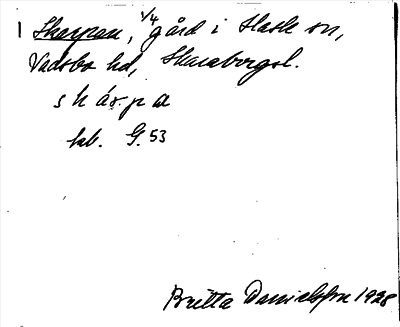 1 Skarpan, 1/4 gård i Hassle sn,
Vadsbo hd, Skaraborgsl.
skárpa
kab. G. 53
Britta Danielsson 1928